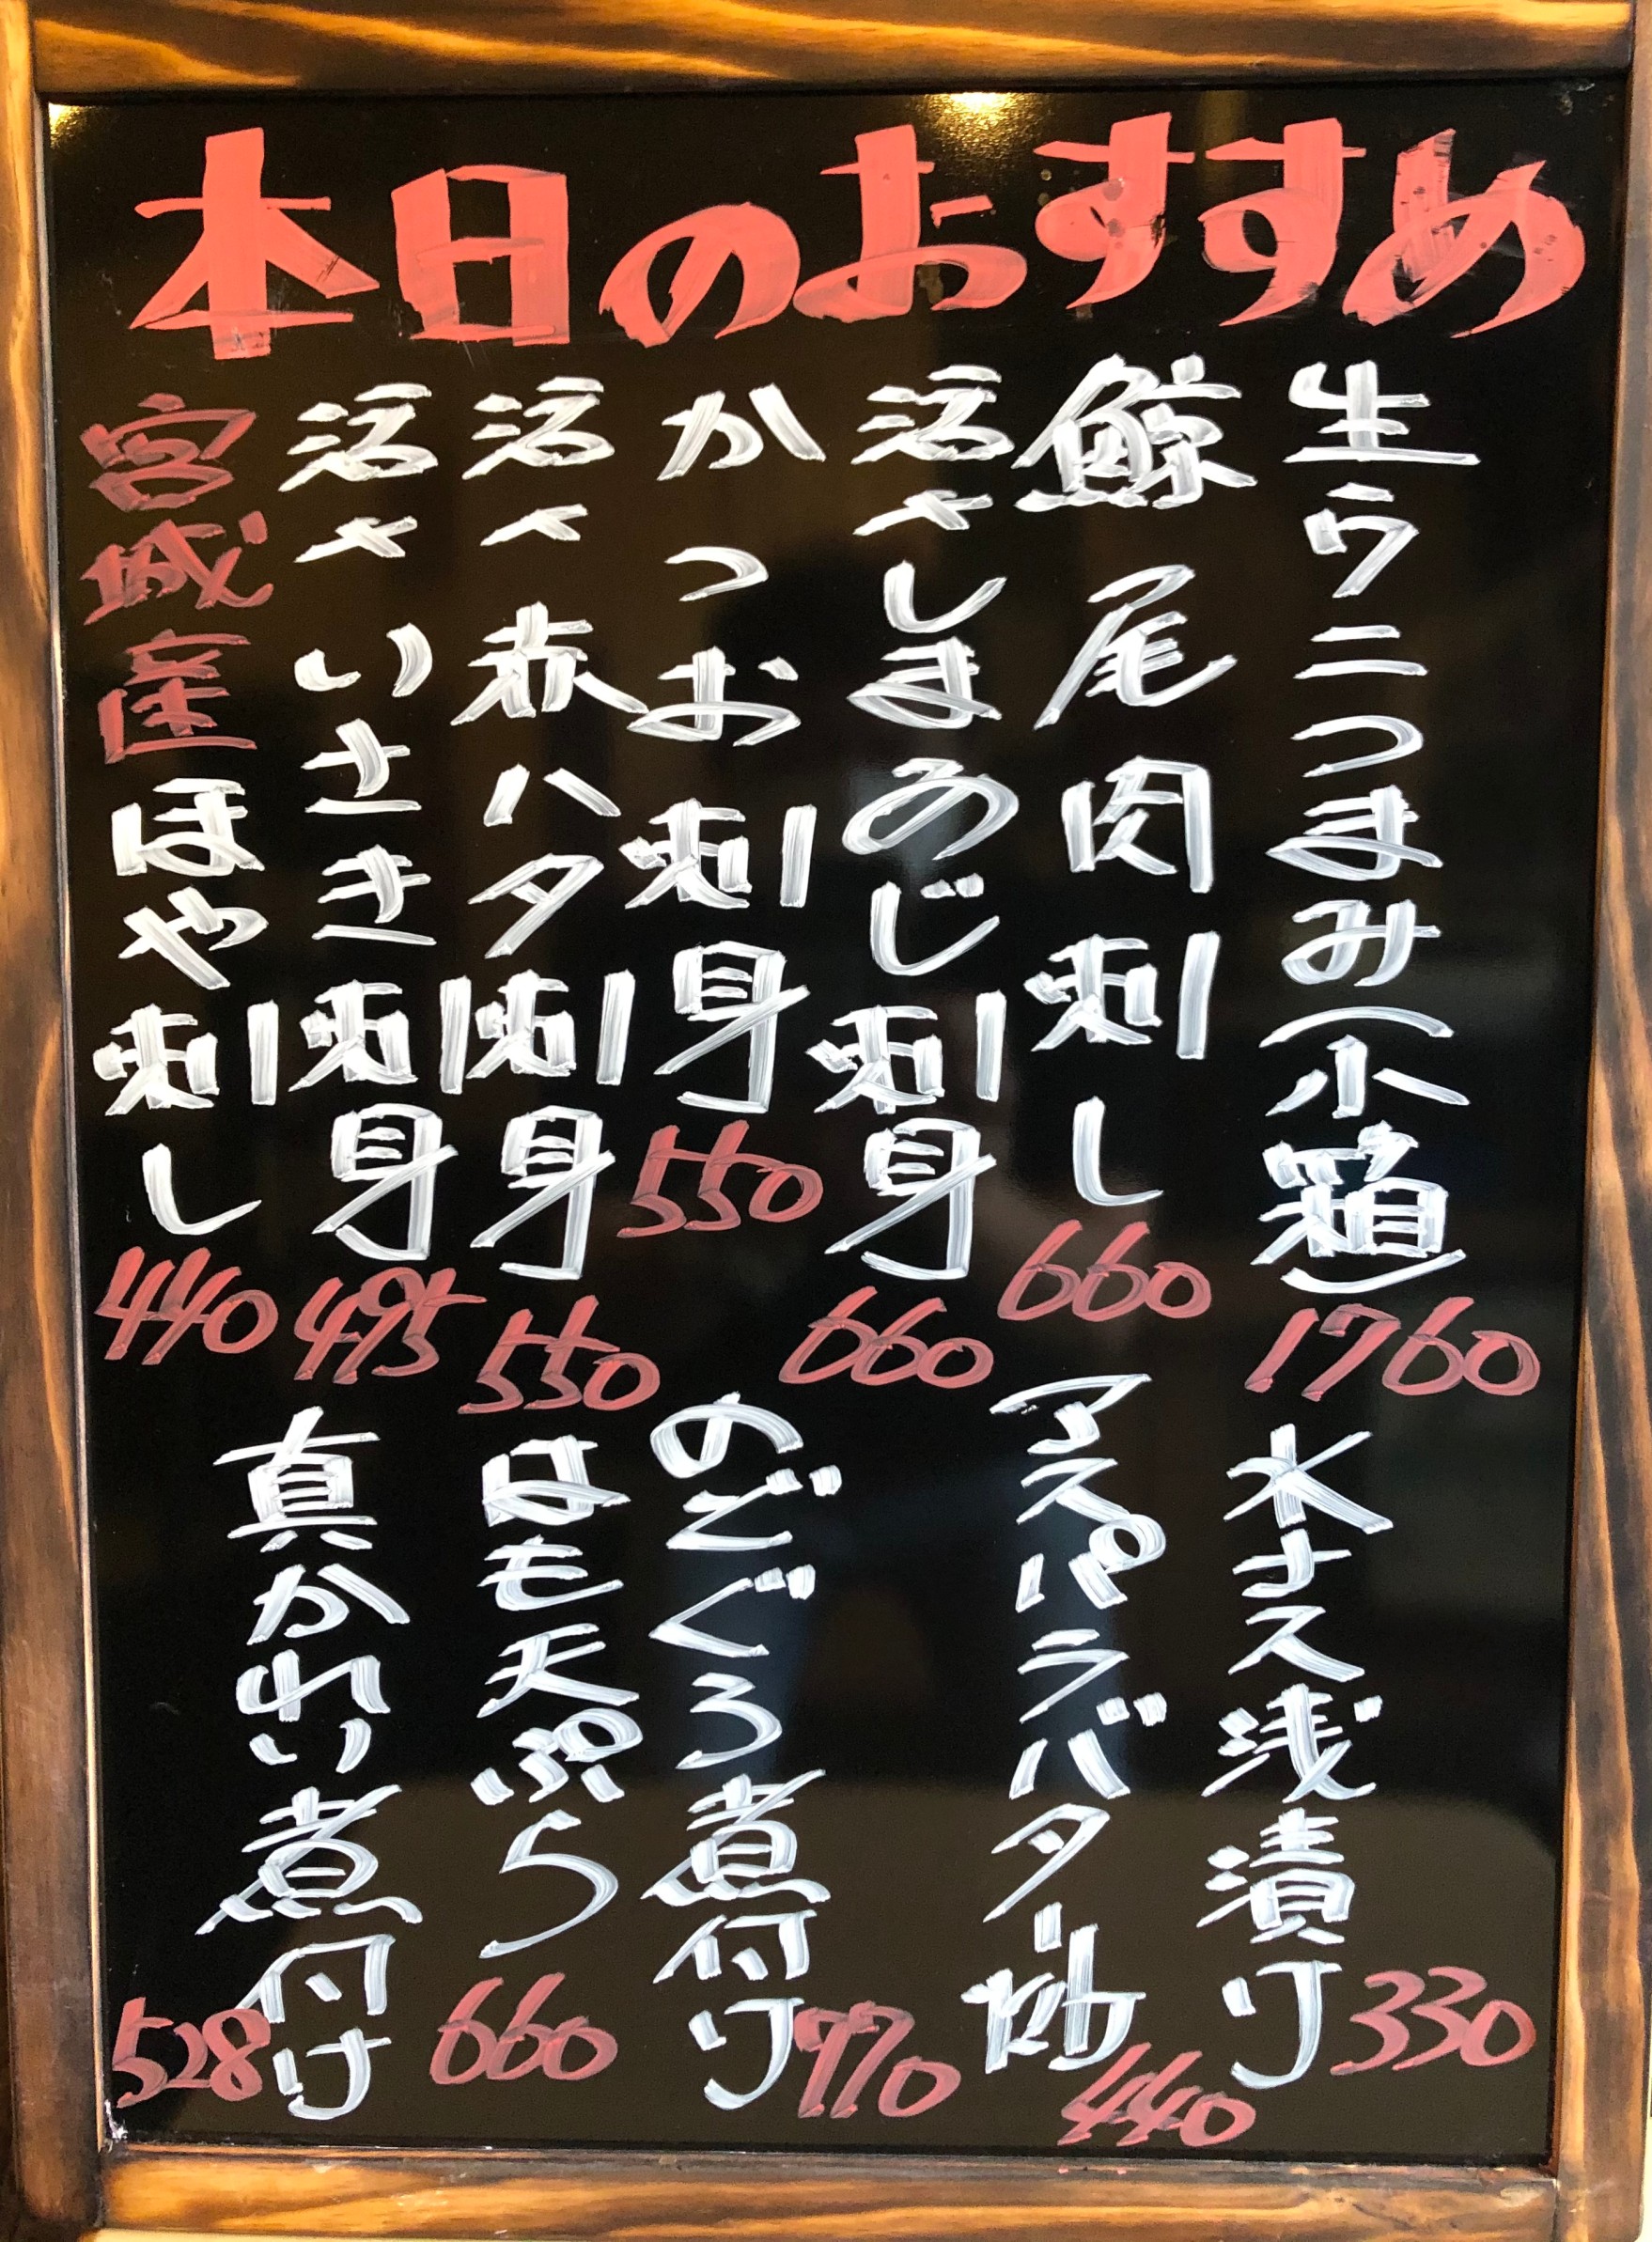 本日のおすすめ
生ウニつまみ(小箱) 1760
鯨尾肉刺し 660
活〆しまあじ刺身 660
かつお刺身 550
活〆赤ハタ刺身 550
活〆いさき刺身 495
宮城産ほや刺し 440
水ナス浅漬け 330
アスパラバター炒 440
のどぐろ煮付け 770
はも天ぷら 660
真かれい煮付け 528